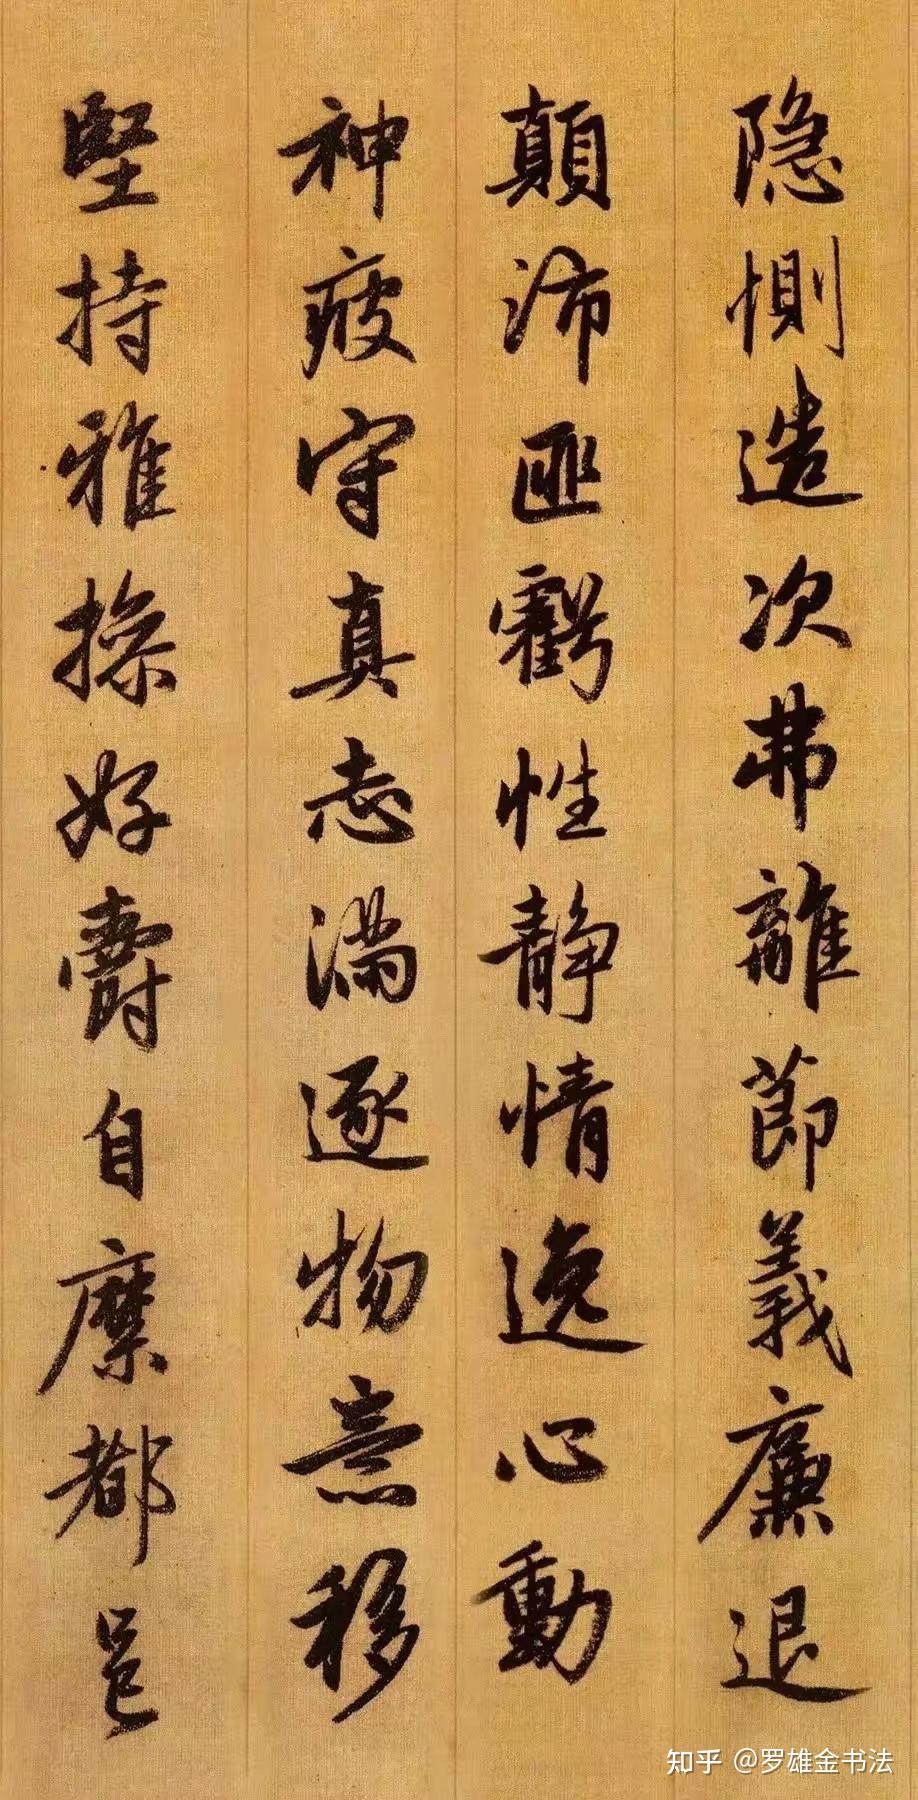 隐惻造次弗離莭義廉退
顛沛匪虧性静情逸心動
神疲守真志满逐物意移
堅持雅操好爵自縻都邑
知乎 @罗雄金书法